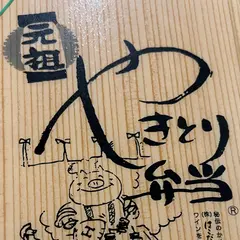 元祖
やきとり
弁当
®
秘伝の
(株)は
ワインを